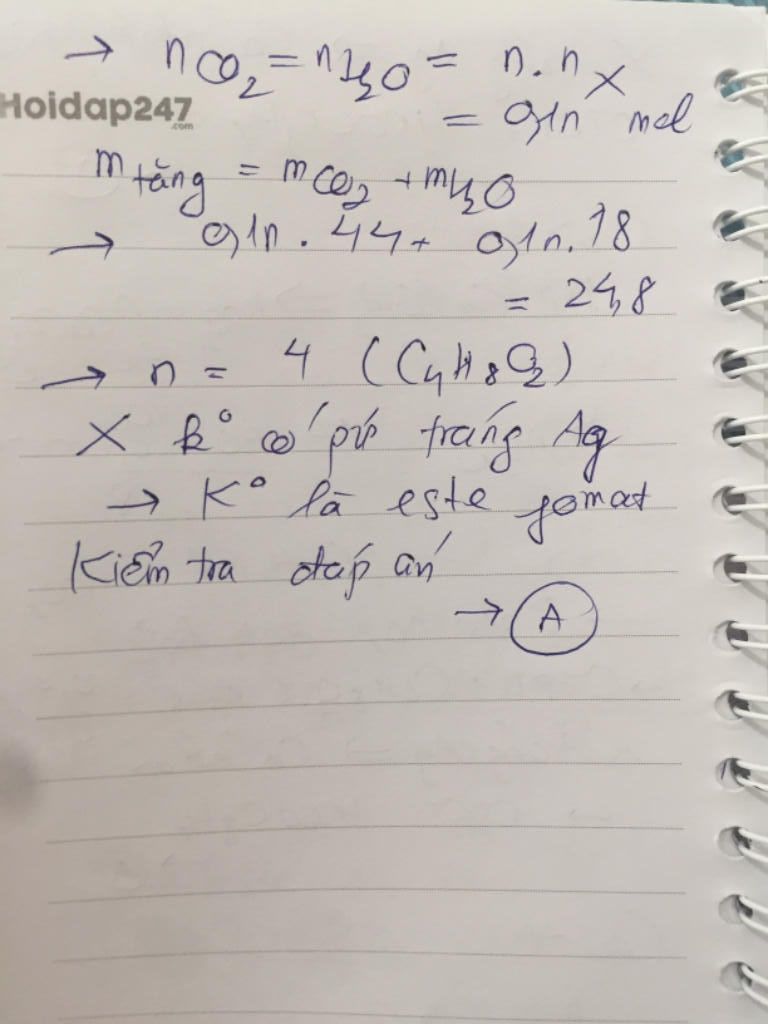 → nCO₂ = nH₂O = n.nX
Hoidap247
.com
= 0,1n mol
m tăng = mCO₂ + mH₂O
→ 0,1n.44+ 0,1n.18
= 24,8
→ n = 4 (C₄H₈O₂)
X k° có pứ tráng Ag
→ K° là este fomat
Kiểm tra đáp án
→ A